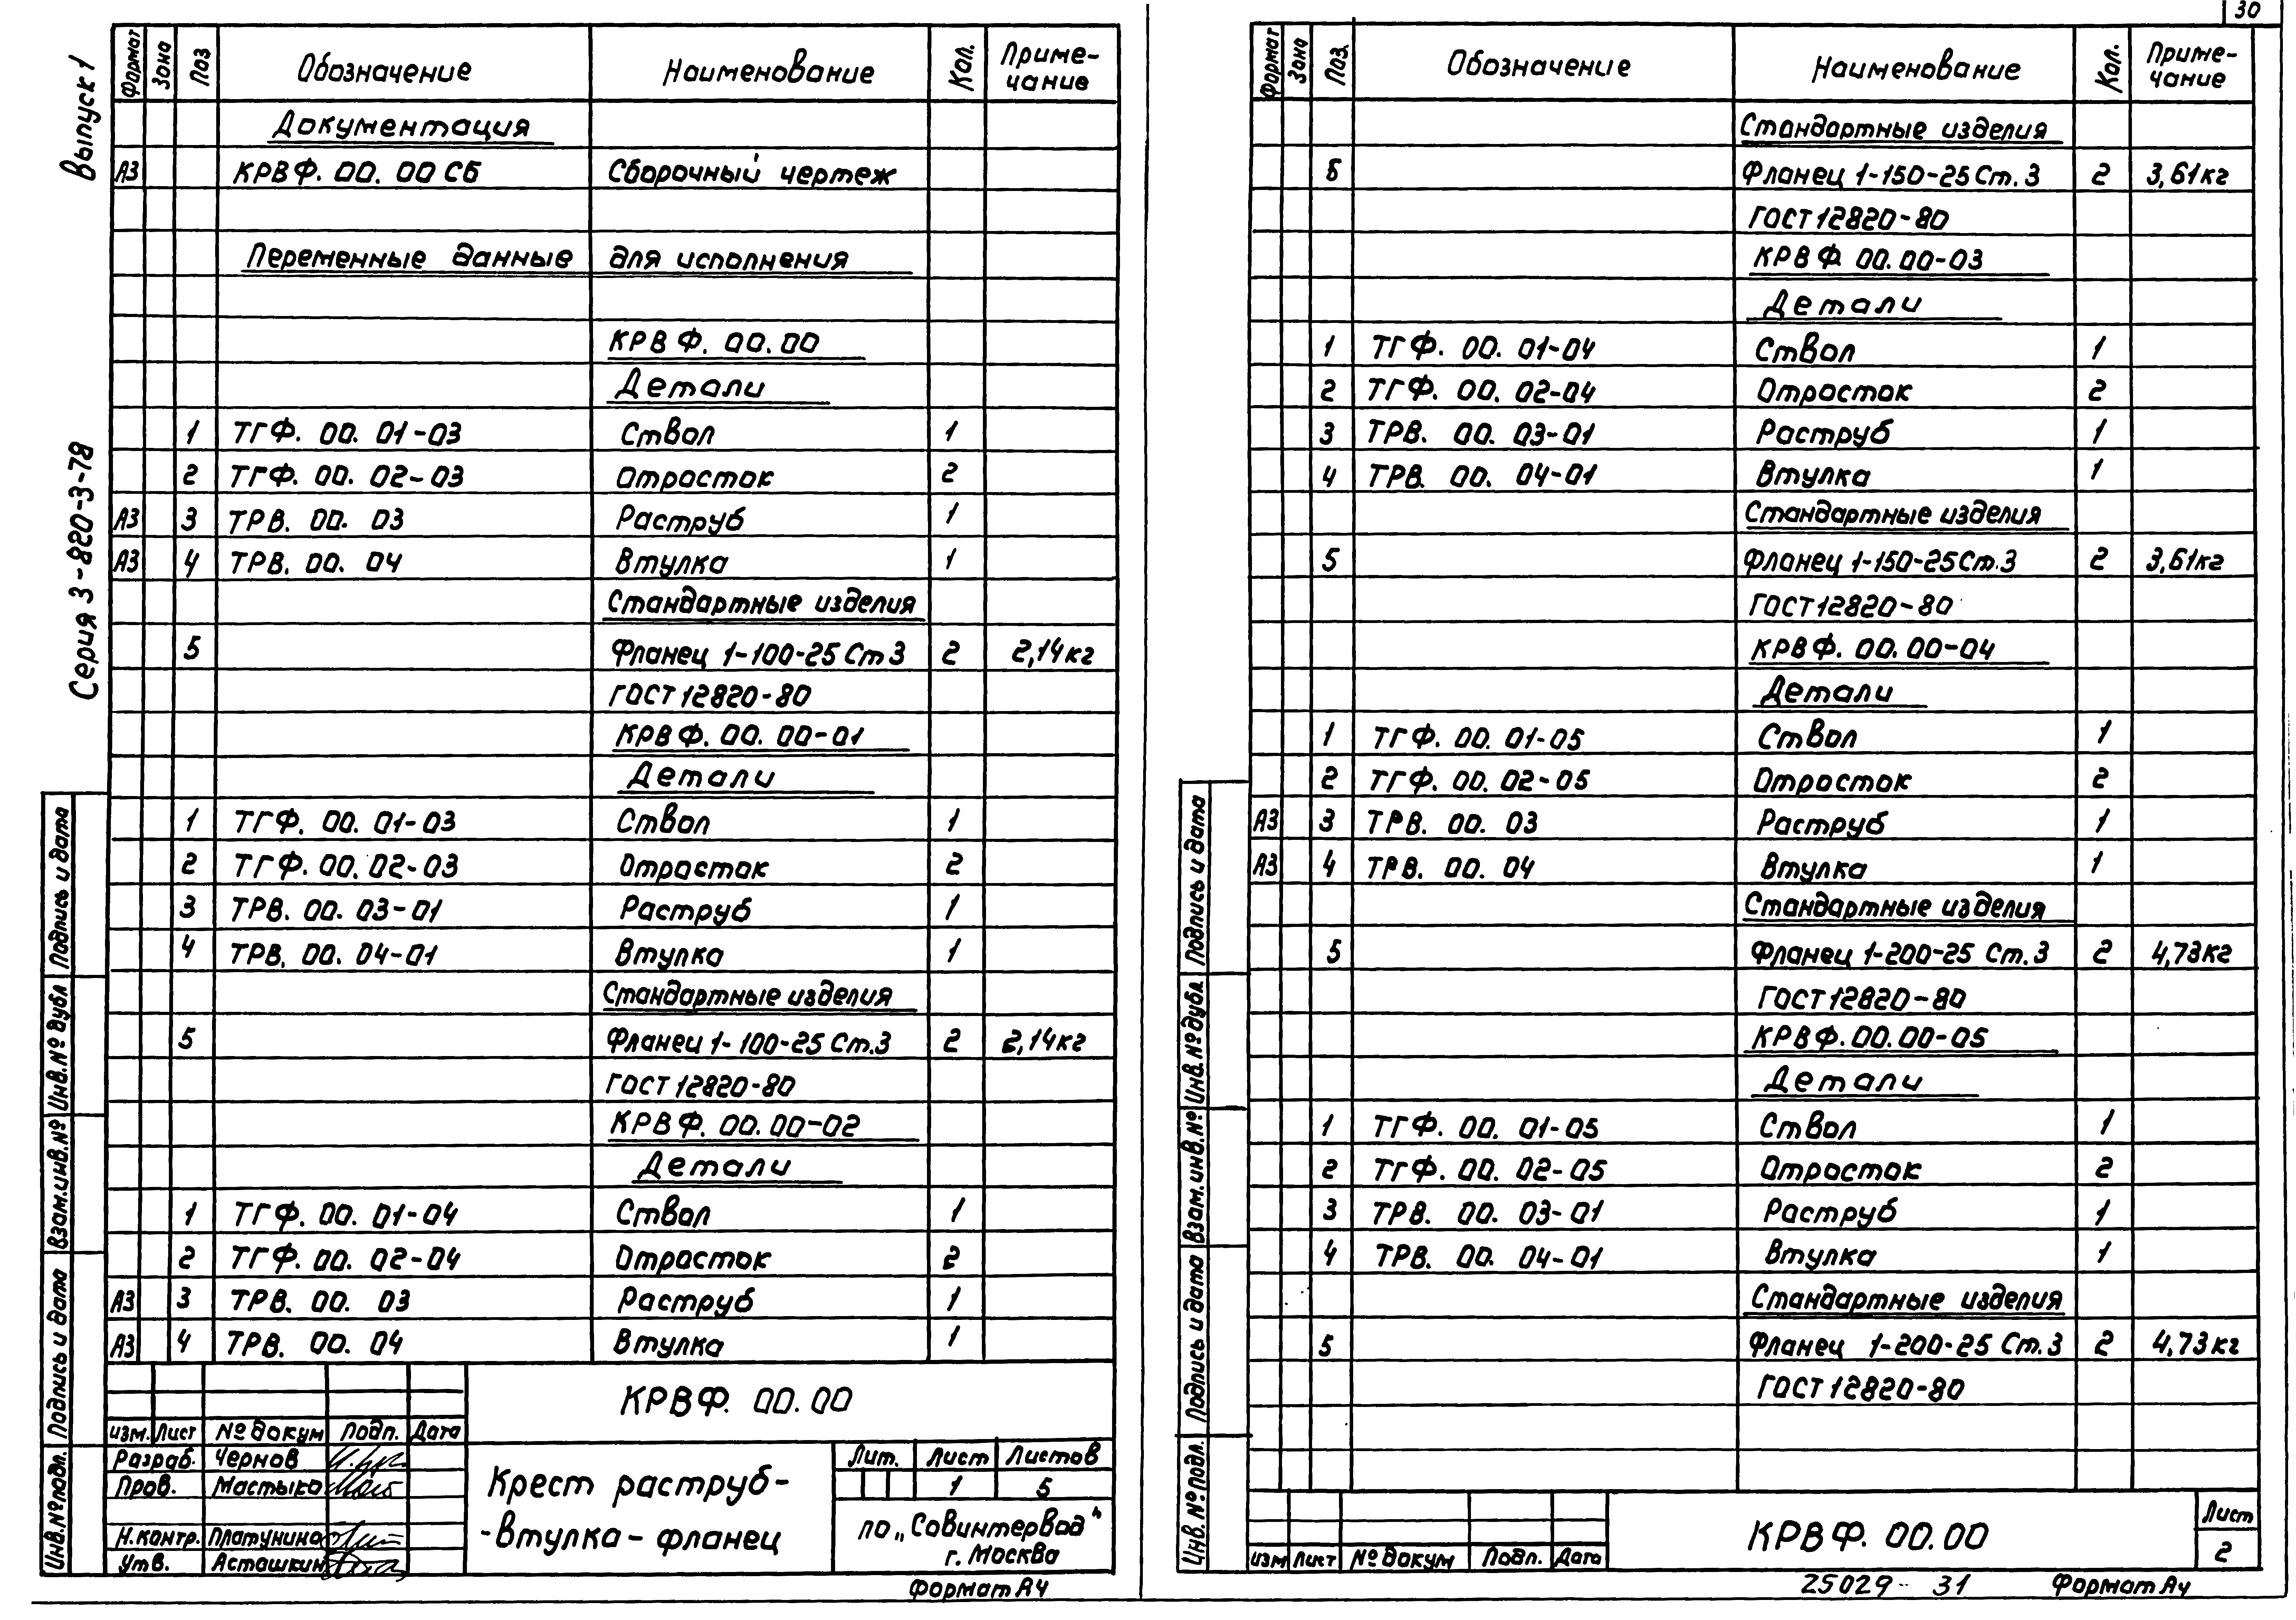 Выпуск 1
Серия 3-820-3-78
Формат Зона Поз Обозначение Наименование Кол. Приме-
чание
Документация
А3 КРВФ. 00. 00 СБ Сборочный чертеж
Переменные данные для исполнения
КРВФ. 00.00
Детали
1 ТГФ. 00. 01-03 Ствол 1
2 ТГФ. 00. 02-03 Отросток 2
А3 3 ТРВ. 00. 03 Раструб 1
А3 4 ТРВ. 00. 04 Втулка 1
Стандартные изделия
5 Фланец 1-100-25 Ст 3 2 2,14кг
ГОСТ 12820-80
КРВФ. 00. 00-01
Детали
1 ТГФ. 00. 01-03 Ствол 1
2 ТГФ. 00. 02-03 Отросток 2
3 ТРВ. 00. 03-01 Раструб 1
4 ТРВ. 00. 04-01 Втулка 1
Стандартные изделия
5 Фланец 1-100-25 Ст.3 2 2,14кг
ГОСТ 12820-80
КРВФ. 00. 00-02
Детали
1 ТГФ. 00. 01-04 Ствол 1
2 ТГФ. 00. 02-04 Отросток 2
А3 3 ТРВ. 00. 03 Раструб 1
А3 4 ТРВ. 00. 04 Втулка 1
КРВФ. 00.00
изм. Лист № докум Подп. Дата
Разраб. Чернов
Пров. Мастыко
Н.контр. Платунина
Утв. Асташкин
Крест раструб-
-втулка-фланец
Лит. Лист Листов
1 5
ПО „Совинтервод"
г. Москва
Инв.№подл. Подпись и дата Взам.инв.№ Инв.№ дубл Подпись и дата
Формат А4
30
Формат Зона Поз. Обозначение Наименование Кол. Приме-
чание
Стандартные изделия
5 Фланец 1-150-25 Ст.3 2 3,61кг
ГОСТ 12820-80
КРВФ 00.00-03
Детали
1 ТГФ. 00. 01-04 Ствол 1
2 ТГФ. 00. 02-04 Отросток 2
3 ТРВ. 00. 03-01 Раструб 1
4 ТРВ. 00. 04-01 Втулка 1
Стандартные изделия
5 Фланец 1-150-25 Ст.3 2 3,61кг
ГОСТ 12820-80
КРВФ. 00.00-04
Детали
1 ТГФ. 00. 01-05 Ствол 1
2 ТГФ. 00. 02-05 Отросток 2
А3 3 ТРВ. 00. 03 Раструб 1
А3 4 ТРВ. 00. 04 Втулка 1
Стандартные изделия
5 Фланец 1-200-25 Ст.3 2 4,73кг
ГОСТ 12820-80
КРВФ.00.00-05
Детали
1 ТГФ. 00. 01-05 Ствол 1
2 ТГФ. 00. 02-05 Отросток 2
3 ТРВ. 00. 03-01 Раструб 1
4 ТРВ. 00. 04-01 Втулка 1
Стандартные изделия
5 Фланец 1-200-25 Ст.3 2 4,73кг
ГОСТ 12820-80
изм Лист № докум Подп. Дата
КРВФ. 00.00
Лист
2
Инв.№подл. Подпись и дата Взам.инв.№ Инв.№ дубл. Подпись и дата
25029 31 Формат А4